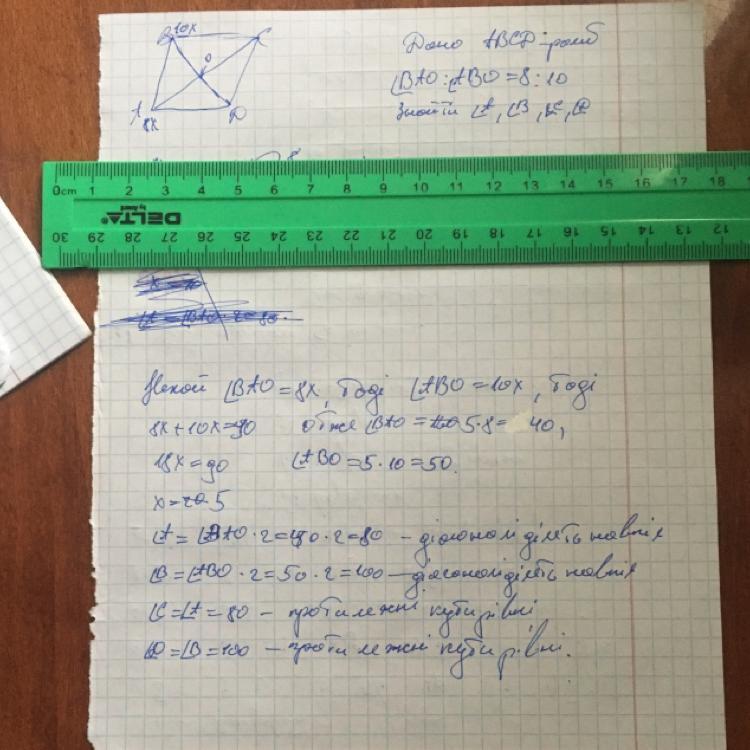 B 10x C
O
A 8x D
Дано ABCD - ромб
∠BAO:∠ABO=8:10
Знайти ∠A, ∠B, ∠C, ∠D
0cm 1 2 3 4 5 6 7 8 9 10 11 12 13 14 15 16 17 18
DELTA® by Axent
30 29 28 27 26 25 24 23 22 21 20 19 18 17 16 15 14 13 12
∠A=∠BAO·2=80.
Нехай ∠BAO=8x, тоді ∠ABO=10x, тоді
8x+10x=90 отже ∠BAO=5·8=40,
18x=90 ∠ABO=5·10=50.
x=5
∠A=∠BAO·2=40·2=80 – діагоналі ділять навпіл
∠B=∠ABO·2=50·2=100 – діагоналі ділять навпіл
∠C=∠A=80 – протилежні кути рівні
∠D=∠B=100 – протилежні кути рівні.